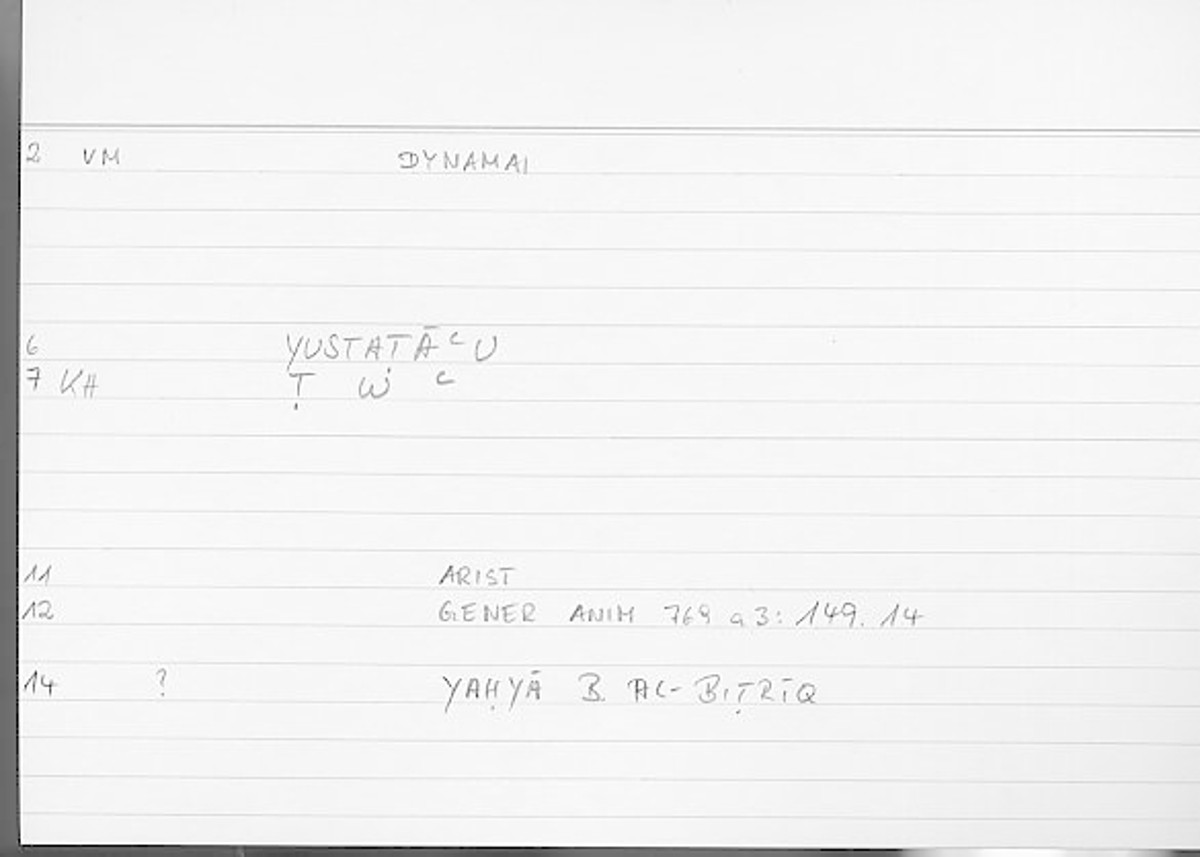 2 VM DYNAMAI
6 YUSTAṬĀʿU
7 KH Ṭ W ʿ
11 ARIST
12 GENER ANIM 769 a 3: 149. 14
14 ? YAḤYĀ B. AL-BIṬRĪQ